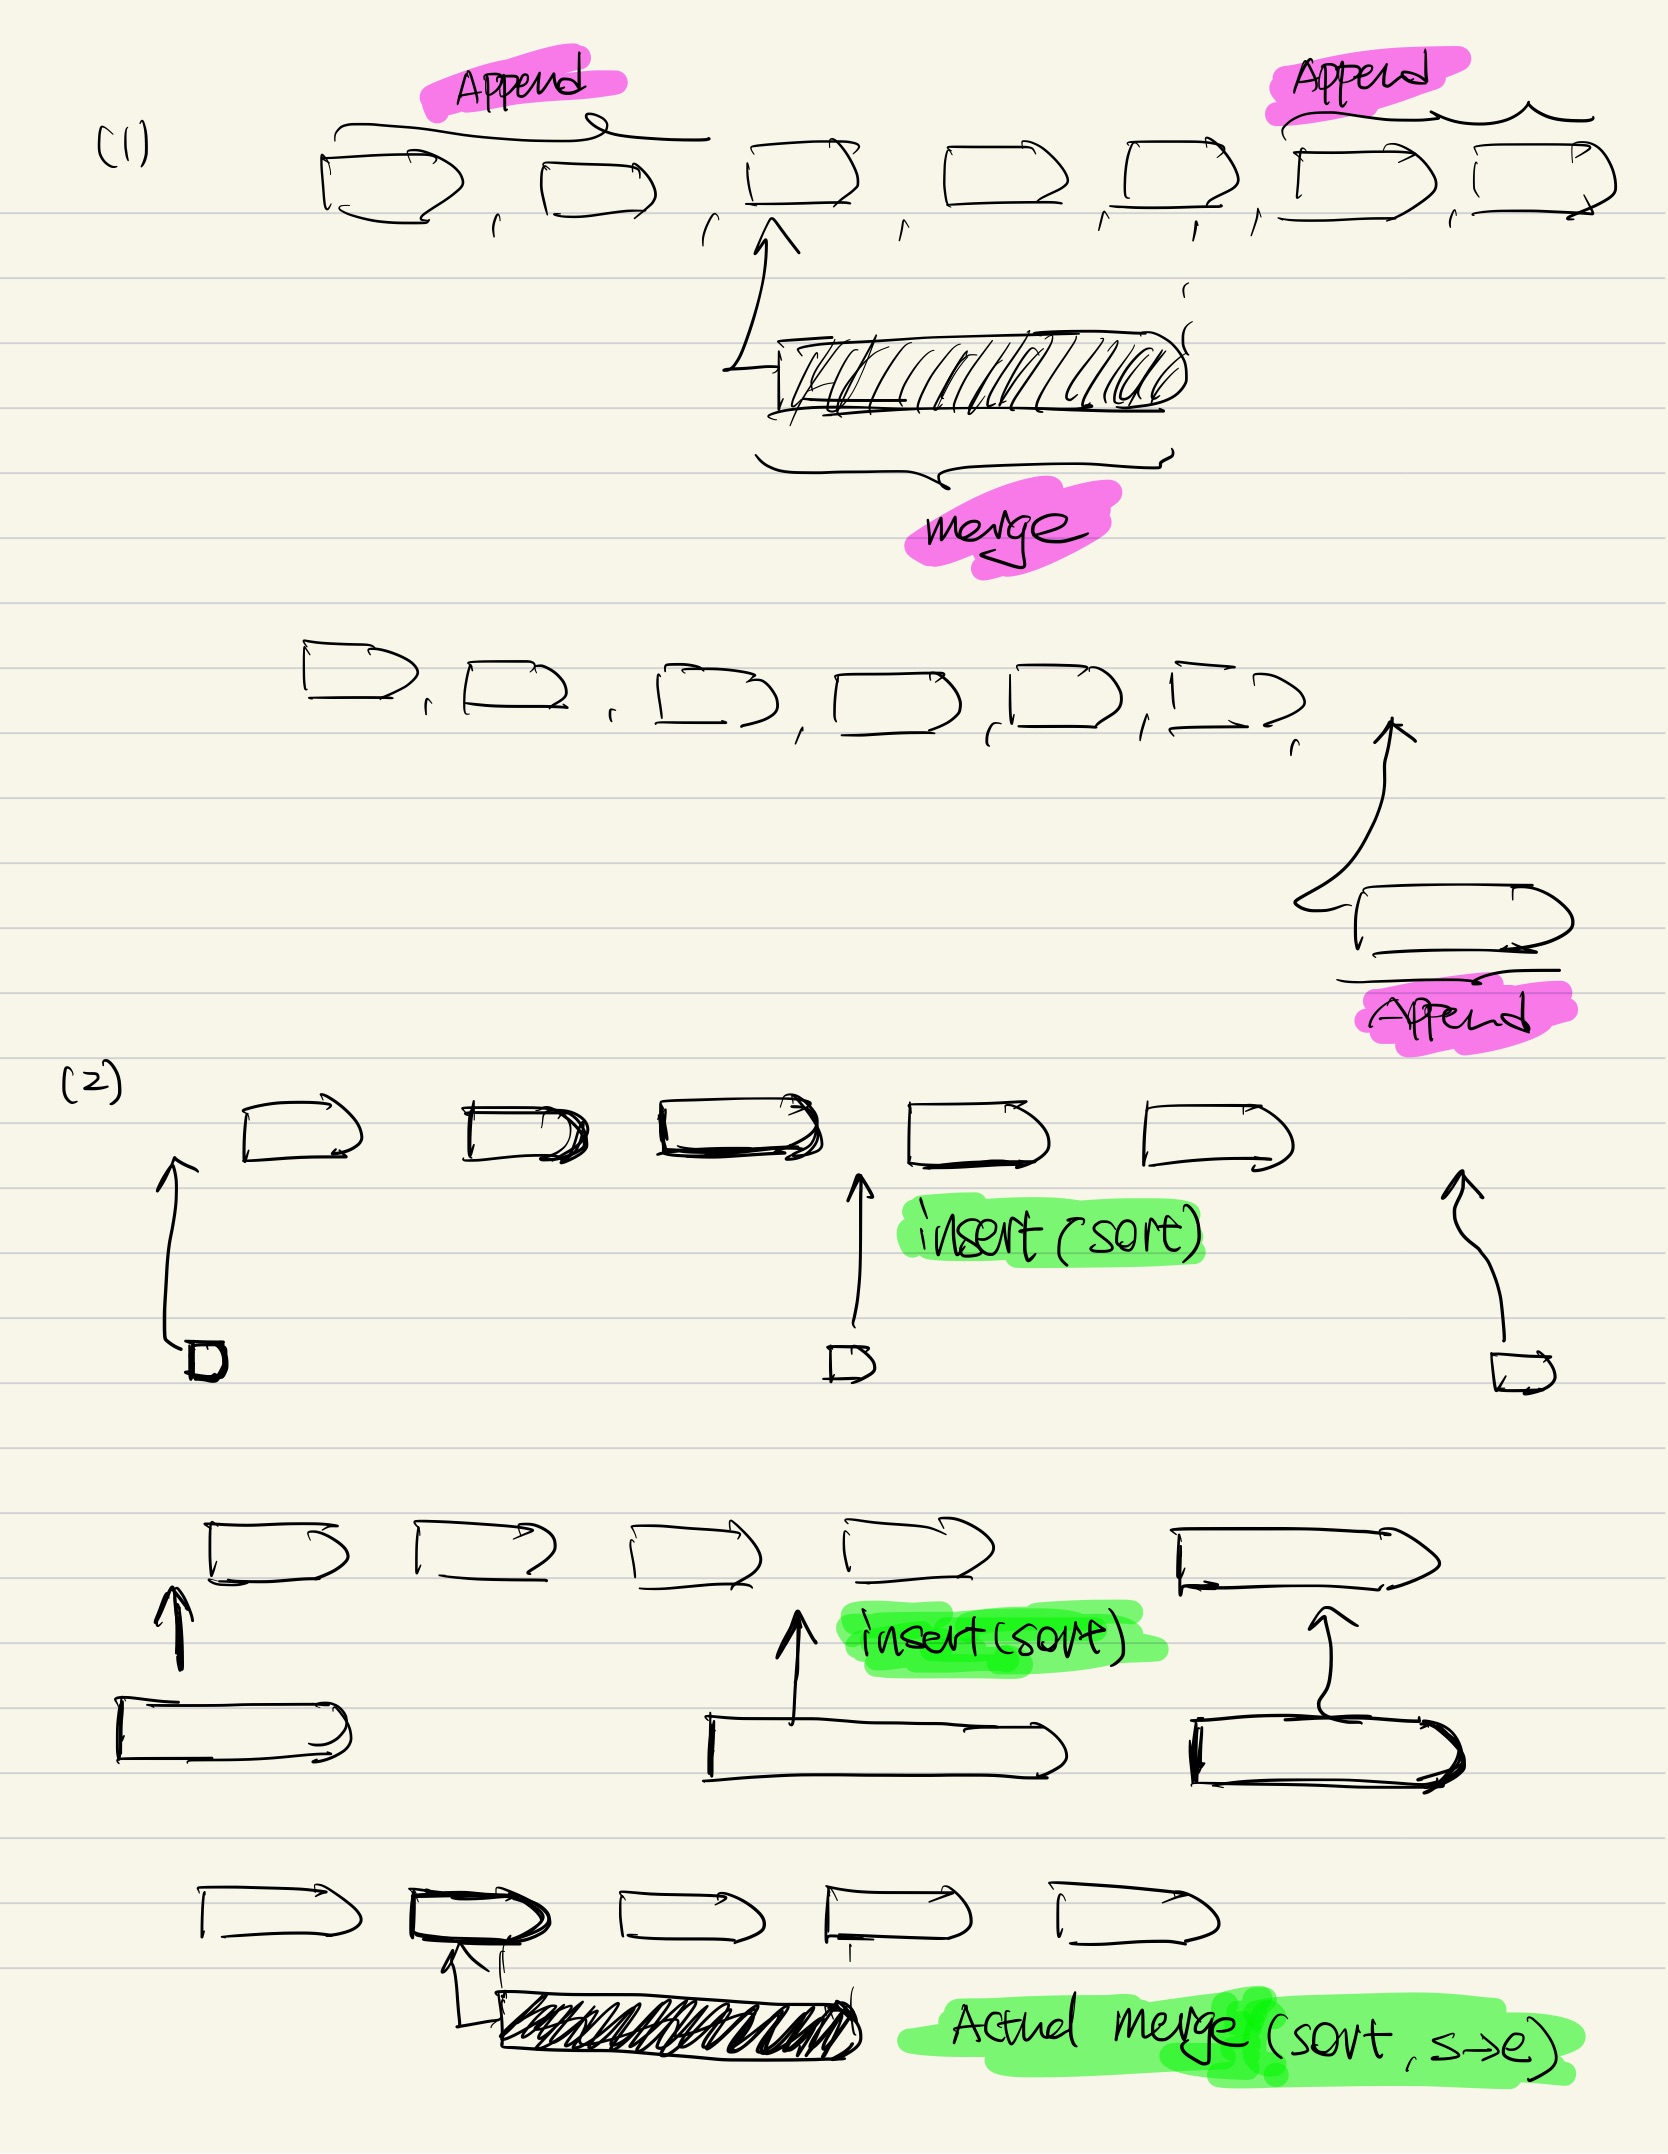 Append Append
(1)
merge
Append
(2)
insert (sort)
insert (sort)
Actual merge (sort, s→e)